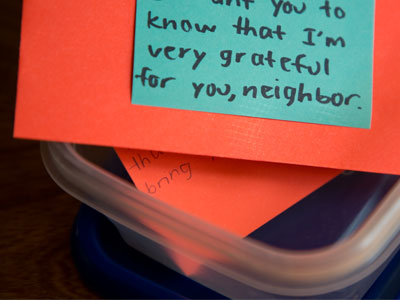 you to
know that I'm
very grateful
for you, neighbor.
bring